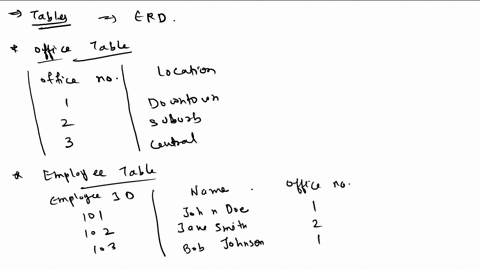 ⇒ Tables → ERD.
* Office Table
office no. Location
1 Downtown
2 suburb
3 Central
* Employee Table
Employee ID Name. office no.
101 John Doe 1
102 Jane Smith 2
103 Bob Johnson 1